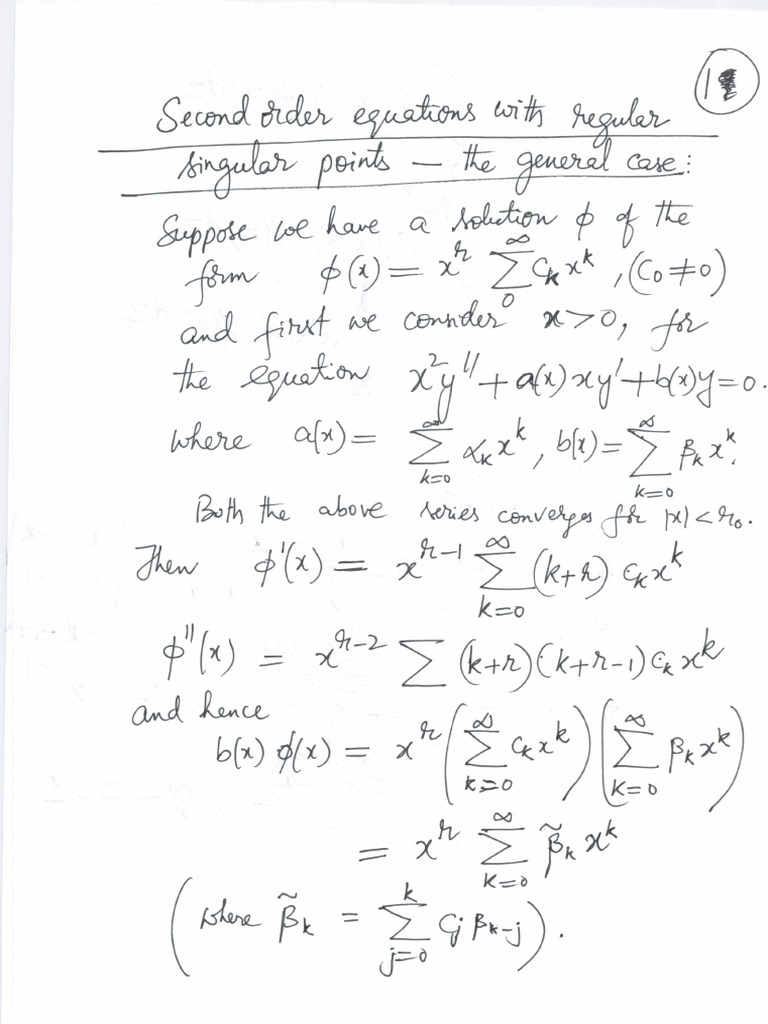 1
Second order equations with regular
singular points — the general case:
Suppose we have a solution φ of the
form φ(x) = x^r ∑_0^∞ c_k x^k, (c_0 ≠ 0)
and first we consider x > 0, for
the equation x²y'' + a(x) xy' + b(x)y = 0.
where a(x) = ∑_{k=0}^∞ α_k x^k, b(x) = ∑_{k=0}^∞ β_k x^k.
Both the above series converges for |x| < r_0.
Then φ'(x) = x^{r-1} ∑_{k=0}^∞ (k+r) c_k x^k
φ''(x) = x^{r-2} ∑ (k+r)(k+r-1) c_k x^k
and hence
b(x) φ(x) = x^r (∑_{k=0}^∞ c_k x^k) (∑_{k=0}^∞ β_k x^k)
= x^r ∑_{k=0}^∞ β̃_k x^k
(where β̃_k = ∑_{j=0}^k c_j β_{k-j}).